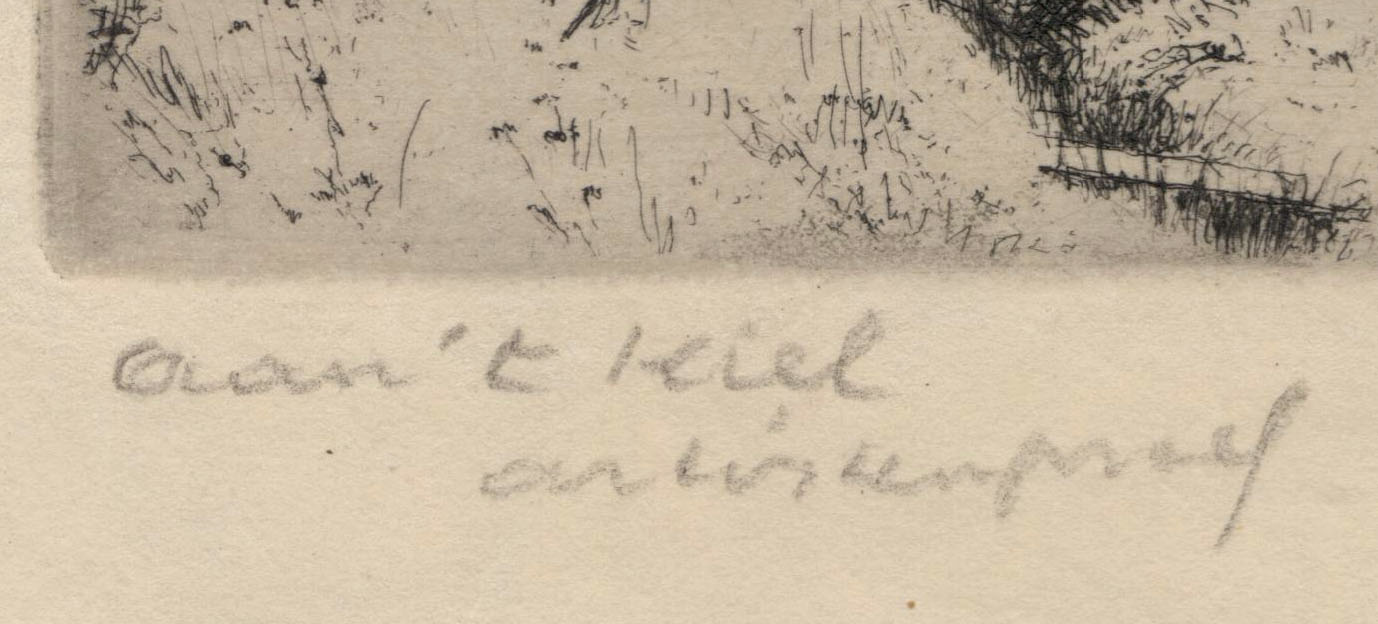 aan't Kiel
artistenproef